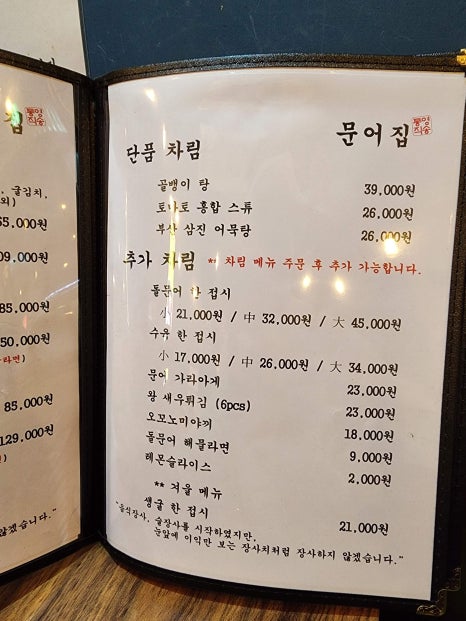 집
, 굴김치,
외)
65,000원
09,000원
85,000원
50,000원
라면)
85,000원
129,000원
않겠습니다."
통영
직송
문어집
단품 차림
골뱅이 탕 39,000원
토마토 홍합 스튜 26,000원
부산 삼진 어묵탕 26,000원
추가 차림 ** 차림 메뉴 주문 후 추가 가능합니다.
돌문어 한 접시
小 21,000원 / 中 32,000원 / 大 45,000원
수육 한 접시
小 17,000원 / 中 26,000원 / 大 34,000원
문어 가라아게 23,000원
왕 새우튀김 (6pcs) 23,000원
오꼬노미야끼 18,000원
돌문어 해물라면 9,000원
레몬슬라이스 2,000원
** 겨울 메뉴
생굴 한 접시 21,000원
"음식장사, 술장사를 시작하였지만,
눈앞에 이익만 보는 장사치처럼 장사하지 않겠습니다."